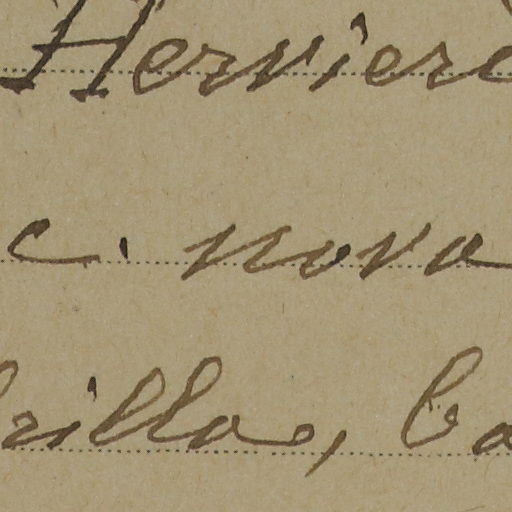 Herviere
c. nova
rilla, ba